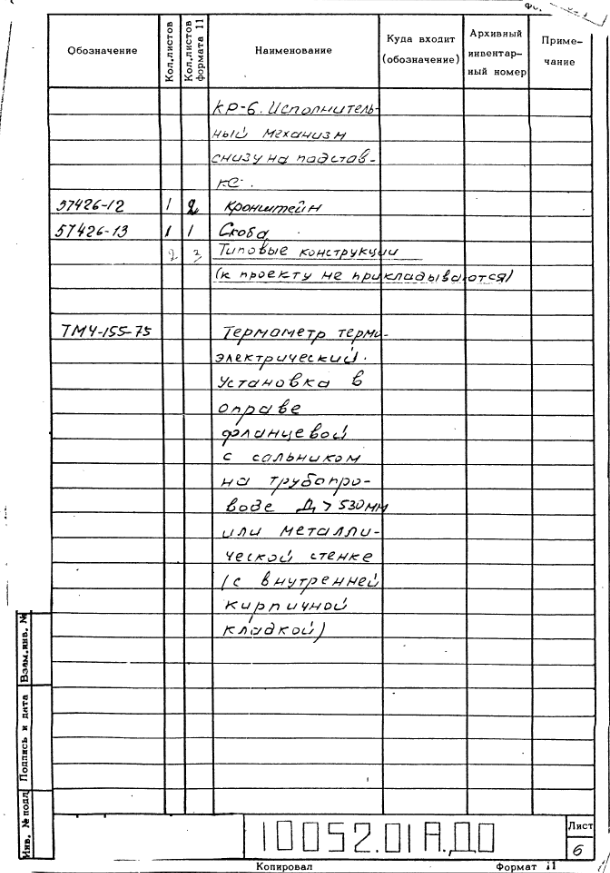 Обозначение Кол.листов Кол.листов формата 11 Наименование Куда входит (обозначение) Архивный инвентарный номер Примечание
КР-6. Исполнитель-
ный механизм
снизу на подстав-
ке.
57426-12 1 2 Кронштейн
57426-13 1 1 Скоба
2 3 Типовые конструкции
(к проекту не прикладываются)
ТМ4-155-75 Термометр термо-
электрический.
Установка в
оправе
фланцевой
с сальником
на трубопро-
воде Д > 530мм
или металли-
ческой стенке
(с внутренней
кирпичной
кладкой)
Взам.инв. №
Подпись и дата
Инв. № подл
10052.01А.Д0
Лист
6
Копировал Формат 11